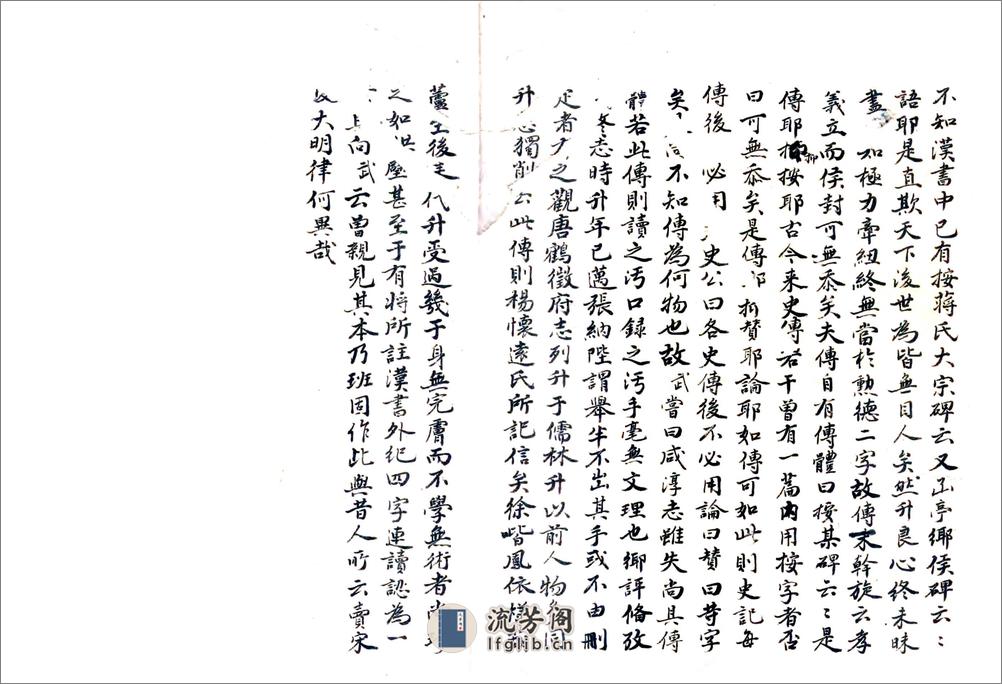 不知漢書中已有按蔣氏大宗碑云又函亭鄉侯碑云〻
語耶是直欺天下後世為皆無目人矣然升良心終未昧
盡 如極力牽紐終無當於勲德二字故傳末幹旋云孝
義立而侯封可無忝矣夫傳自有傳體曰按某碑云〻是
傳耶抑按耶古今来史傳若干曾有一篇內用按字者否
曰可無忝矣是傳耶抑賛耶論耶如傳可如此則史記每
傳後 必用 史公曰各史傳後不必用論曰賛曰等字
矣 不知傳為何物也故武嘗曰咸淳志雖失尚具傳
體若此傳則讀之汚口録之汚手毫無文理也鄉評脩攷
志時升年已邁張納陛謂舉半不出其手或不由刪
定者 之觀唐鶴徵府志列升于儒林升以前人物
升 獨削 此傳則楊懷遠氏所記信矣徐喈鳳依樣
蘆 後 代升受過幾于身無完膚而不學無術者
之如 甚至于有將所註漢書外紀四字連讀認為一
且向武云曾親見其本乃班固作此與昔人所云賣宋
版大明律何異哉
流芳阁
lfglib.cn